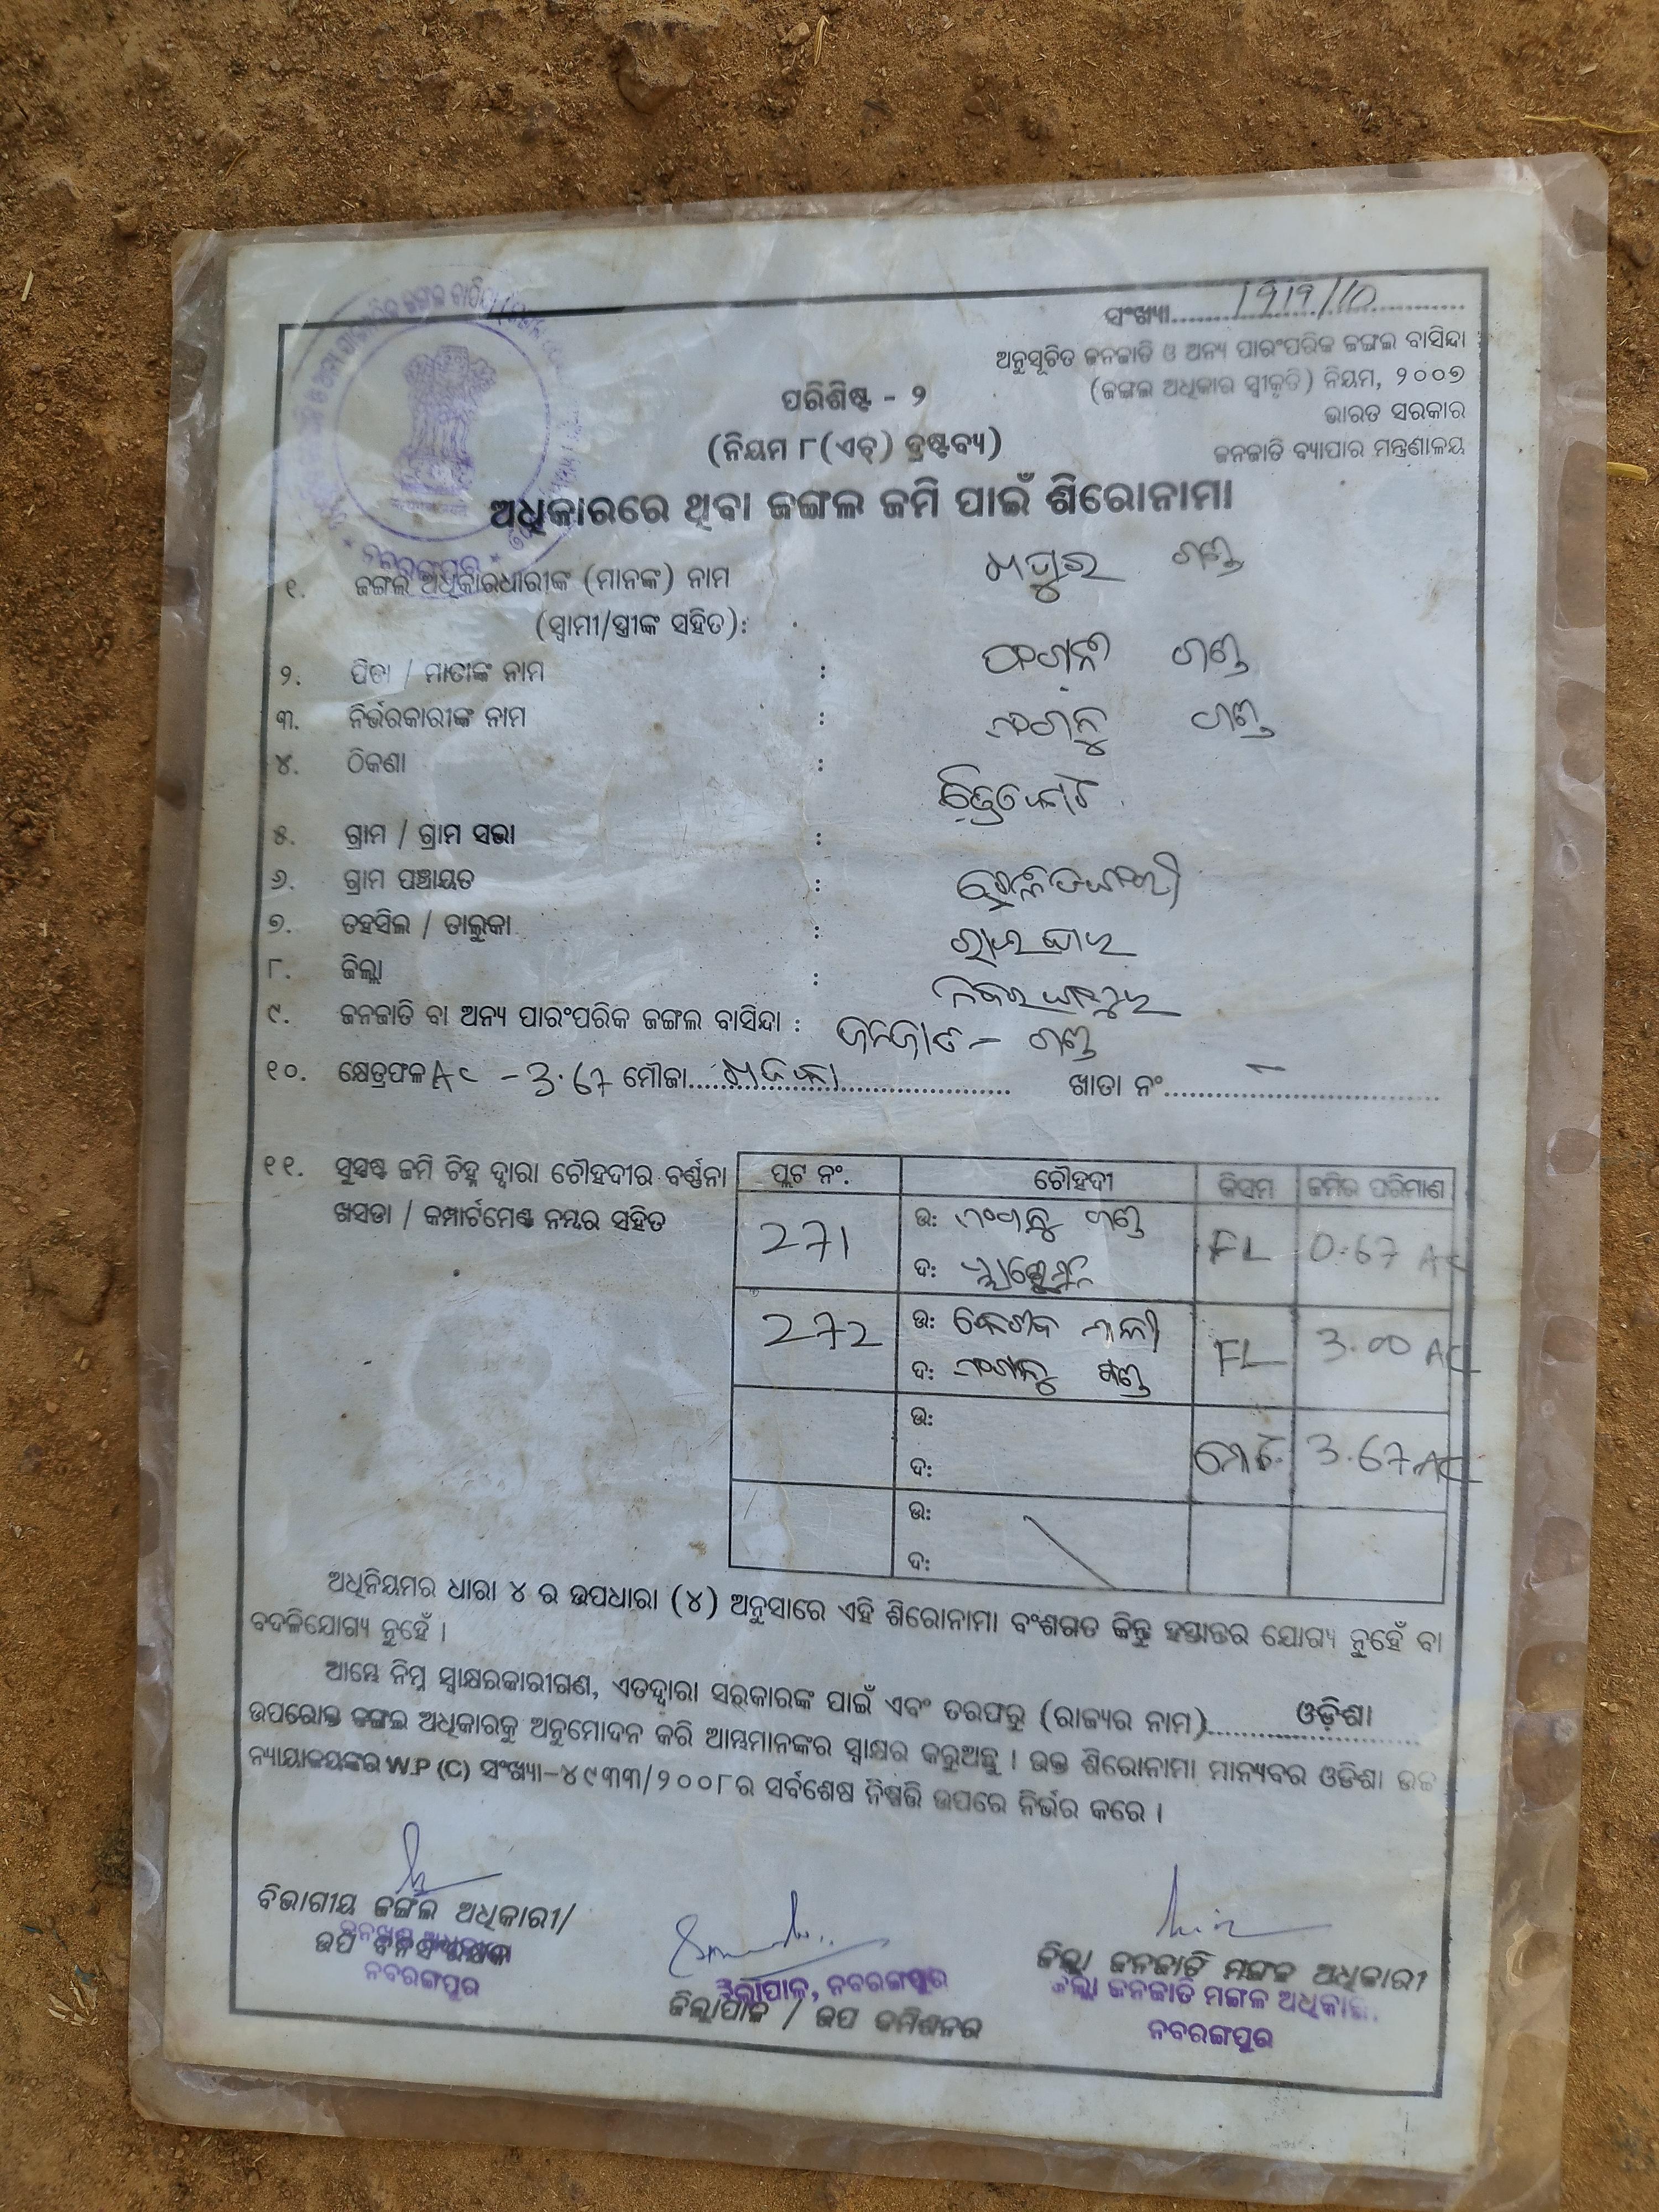 ସଂଖ୍ୟା 1919/10
ଅନୁସୂଚିତ ଜନଜାତି ଓ ଅନ୍ୟ ପାରଂପରିକ ଜଙ୍ଗଲ ବାସିନ୍ଦା
(ଜଙ୍ଗଲ ଅଧିକାର ସ୍ୱୀକୃତି) ନିୟମ, ୨୦୦୭
ଭାରତ ସରକାର
ଜନଜାତି ବ୍ୟାପାର ମନ୍ତ୍ରଣାଳୟ
ପରିଶିଷ୍ଟ - ୨
(ନିୟମ ୮(ଏଚ୍) ଦ୍ରଷ୍ଟବ୍ୟ)
ଅଧିକାରରେ ଥିବା ଜଙ୍ଗଲ ଜମି ପାଇଁ ଶିରୋନାମା
ନବରଙ୍ଗପୁର
୧. ଜଙ୍ଗଲ ଅଧିକାରଧାରୀଙ୍କ (ମାନଙ୍କ) ନାମ ଗଣ୍ଡ
(ସ୍ୱାମୀ/ସ୍ତ୍ରୀଙ୍କ ସହିତ):
୨. ପିତା / ମାତାଙ୍କ ନାମ : ଗଣ୍ଡ
୩. ନିର୍ଭରକାରୀଙ୍କ ନାମ : ଗଣ୍ଡ
୪. ଠିକଣା :
୫. ଗ୍ରାମ / ଗ୍ରାମ ସଭା :
୬. ଗ୍ରାମ ପଞ୍ଚାୟତ :
୭. ତହସିଲ / ତାଲୁକା : ରାଇଘର
୮. ଜିଲ୍ଲା : ନବରଙ୍ଗପୁର
୯. ଜନଜାତି ବା ଅନ୍ୟ ପାରଂପରିକ ଜଙ୍ଗଲ ବାସିନ୍ଦା : ଜନଜାତି - ଗଣ୍ଡ
୧୦. କ୍ଷେତ୍ରଫଳ AC - 3.67 ମୌଜା ଖାତା ନଂ -
୧୧. ସୁସ୍ପଷ୍ଟ ଜମି ଚିହ୍ନ ଦ୍ୱାରା ଚୌହଦୀର ବର୍ଣ୍ଣନା
ଖସଡା / କମ୍ପାର୍ଟମେଣ୍ଟ ନମ୍ବର ସହିତ
ପ୍ଲଟ ନଂ. ଚୌହଦୀ କିସମ ଜମିର ପରିମାଣ
271 ଉ: ଗଣ୍ଡ FL 0.67 AC
ଦ:
272 ଉ: FL 3.00 AC
ଦ: ଗଣ୍ଡ
ଉ: ମୋଟ 3.67 AC
ଦ:
ଉ:
ଦ:
ଅଧିନିୟମର ଧାରା ୪ ର ଉପଧାରା (୪) ଅନୁସାରେ ଏହି ଶିରୋନାମା ବଂଶଗତ କିନ୍ତୁ ହସ୍ତାନ୍ତର ଯୋଗ୍ୟ ନୁହେଁ ବା
ବଦଳିଯୋଗ୍ୟ ନୁହେଁ ।
ଆମ୍ଭେ ନିମ୍ନ ସ୍ୱାକ୍ଷରକାରୀଗଣ, ଏତଦ୍ଦ୍ୱାରା ସରକାରଙ୍କ ପାଇଁ ଏବଂ ତରଫରୁ (ରାଜ୍ୟର ନାମ) ଓଡ଼ିଶା
ଉପରୋକ୍ତ ଜଙ୍ଗଲ ଅଧିକାରକୁ ଅନୁମୋଦନ କରି ଆମ୍ଭମାନଙ୍କର ସ୍ୱାକ୍ଷର କରୁଅଛୁ । ଉକ୍ତ ଶିରୋନାମା ମାନ୍ୟବର ଓଡିଶା ଉଚ୍ଚ
ନ୍ୟାୟାଳୟଙ୍କର W.P (C) ସଂଖ୍ୟା-୪୯୩୩/୨୦୦୮ର ସର୍ବଶେଷ ନିଷ୍ପତ୍ତି ଉପରେ ନିର୍ଭର କରେ ।
ବିଭାଗୀୟ ଜଙ୍ଗଲ ଅଧିକାରୀ/
ଉପ ବନସଂରକ୍ଷକ
ନବରଙ୍ଗପୁର
ଜିଲ୍ଲାପାଳ, ନବରଙ୍ଗପୁର
ଜିଲ୍ଲାପାଳ / ଉପ କମିଶନର
ଜିଲ୍ଲା ଜନଜାତି ମଙ୍ଗଳ ଅଧିକାରୀ
ଜିଲ୍ଲା ଜନଜାତି ମଙ୍ଗଳ ଅଧିକାରୀ
ନବରଙ୍ଗପୁର